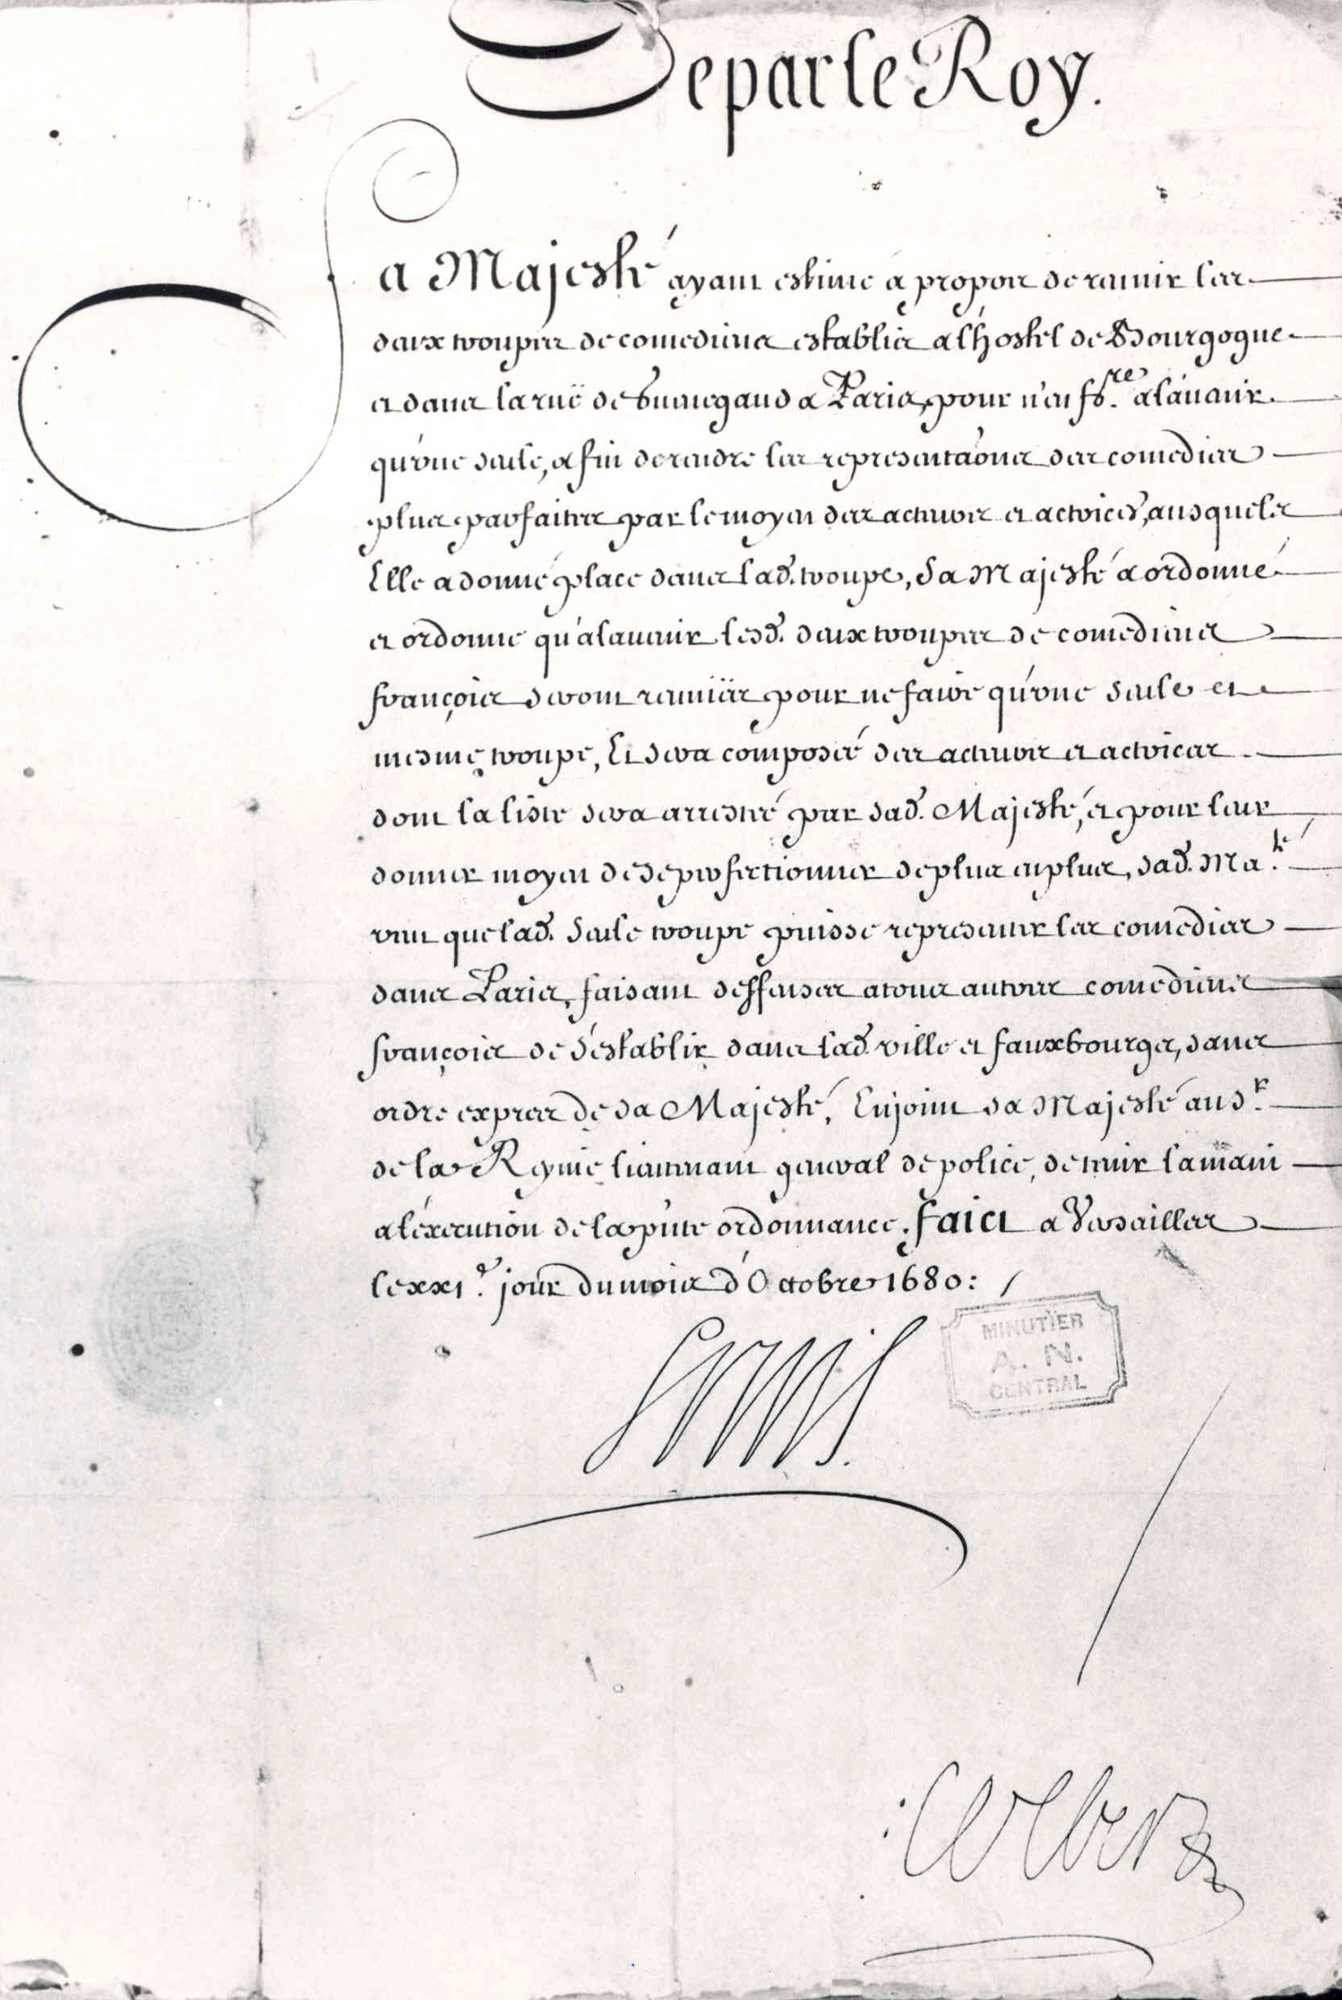 De par le Roy.
Sa Majesté ayant estimé a propos de reunir les
deux troupes de comediens establis a l'hostel de Bourgogne
et dans la rüe de Guenegaud a Paris, pour n'en f.re a l'avenir
qu'une seule, afin de rendre les representãons des comedies
plus parfaites par le moyen des acteurs et actrices, ausquels
Elle a donné place dans lad. troupe, Sa Majesté a ordonné
et ordonne qu'a l'avenir lesd. deux troupes de comediens
françois seront reünies pour ne faire qu'une seule et
mesme troupe, Et sera composée des acteurs et actrices
dont la liste sera arrestée par sad. Majesté, et pour leur
donner moyen de se perfectionner de plus en plus, sad. Ma.té
veut que lad. seule troupe puisse representer les comedies
dans Paris, faisant deffenses a tous autres comediens
françois de s'establir dans lad. ville et fauxbourgs, sans
ordre expres de sa Majesté, Enjoint sa Majesté au S.r
de la Reynie lieutenant general de police, de tenir la main
a l'éxecution de la pñte ordonnance. Faict a Versailles
le xxi.e jour du mois d'Octobre 1680: /
Louis.
MINUTIER
A. N.
CENTRAL
Colbert